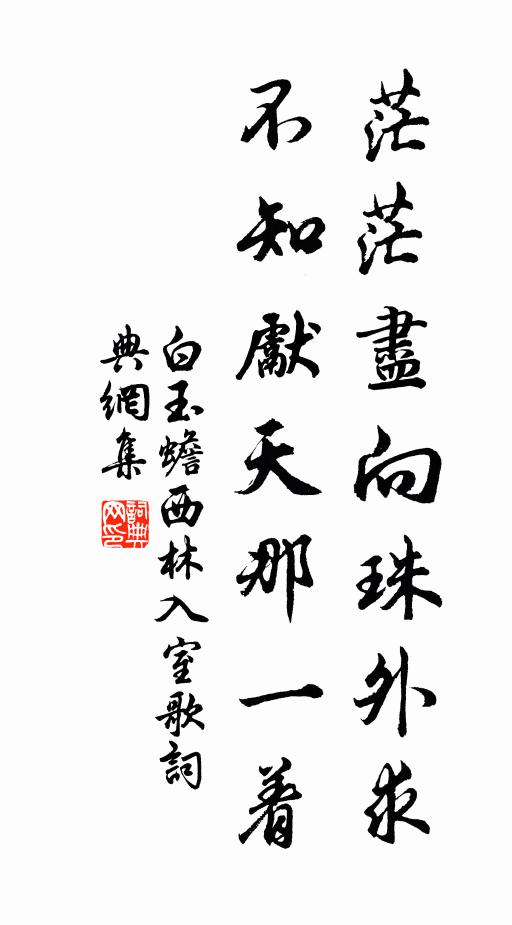 茫茫盡向珠外求
不知獻天那一着
白玉蟾西林入室歌詞
典網集
詞典
网印